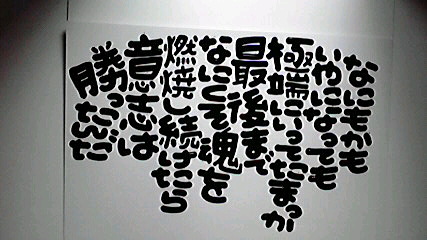 なにもかも
いやになっても
極端にいってたまっか
最後まで
なにくそ魂を
燃焼し続けたら
意志は
勝ったんだ